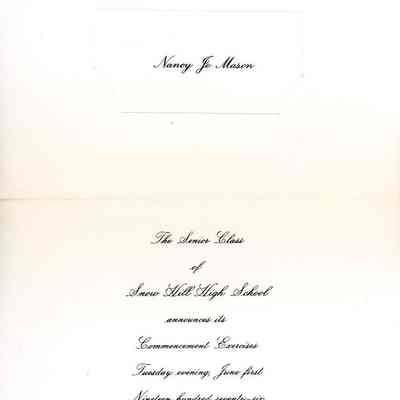 Nancy Jo Mason
The Senior Class
of
Snow Hill High School
announces its
Commencement Exercises
Tuesday evening, June first
Nineteen hundred seventy-six